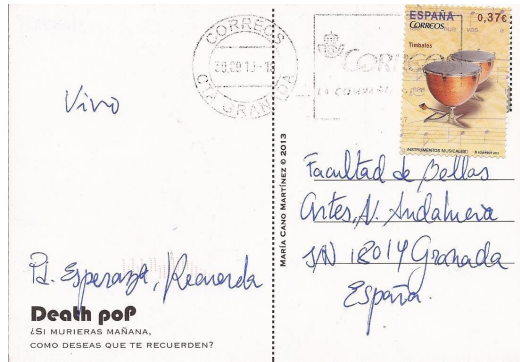 CORREOS
CTA GRANADA
CORREOS
ESPAÑA
0,37€
CORREOS
Timbales
INSTRUMENTOS MUSICALES
Vivo
MARÍA CANO MARTÍNEZ © 2013
Facultad de Bellas
Artes, N. Andalucia
S/N 18014 Granada
España.
Pd. Esperanza, Recuerda
Death poP
¿SI MURIERAS MAÑANA,
COMO DESEAS QUE TE RECUERDEN?